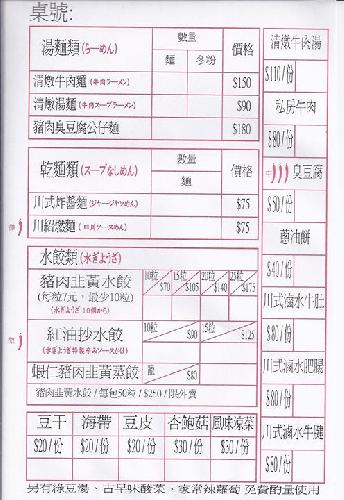 桌號:
湯麵類(らーめん)
數量
價格
麵 冬粉
清燉牛肉麵(牛肉ラーメン) $150
清燉湯麵(牛肉スープラーメン) $90
豬肉臭豆腐公仔麵 $180
乾麵類(スープなしめん)
數量
價格
麵
川式炸醬麵(ジャージャめん) $75
$75
水餃類(水ぎょうざ)
豬肉韭黃水餃
(每粒7元,最少10粒)
(水ぎょうざ 10個から)
10粒 $70 15粒 $105 20粒 $140 25粒 $175
紅油抄水餃
10粒 $90 15粒 $125
蝦仁豬肉韭黃蒸餃
籠 $80
豬肉韭黃水餃/每包50粒/$250/限外賣
豆干 海帶 豆皮 杏鮑菇 風味涼菜
$20/份 $20/份 $20/份 $30/份 $30/份
清燉牛肉湯
$110/份
私房牛肉
$80/份
臭豆腐
$50/份
蔥油餅
$40/份
川式滷水牛肚
$80/份
川式滷水肥腸
$80/份
川式滷水牛腱
$80/份
另有綠豆湯、古早味酸菜、家常辣蘿蔔 免費酌量使用